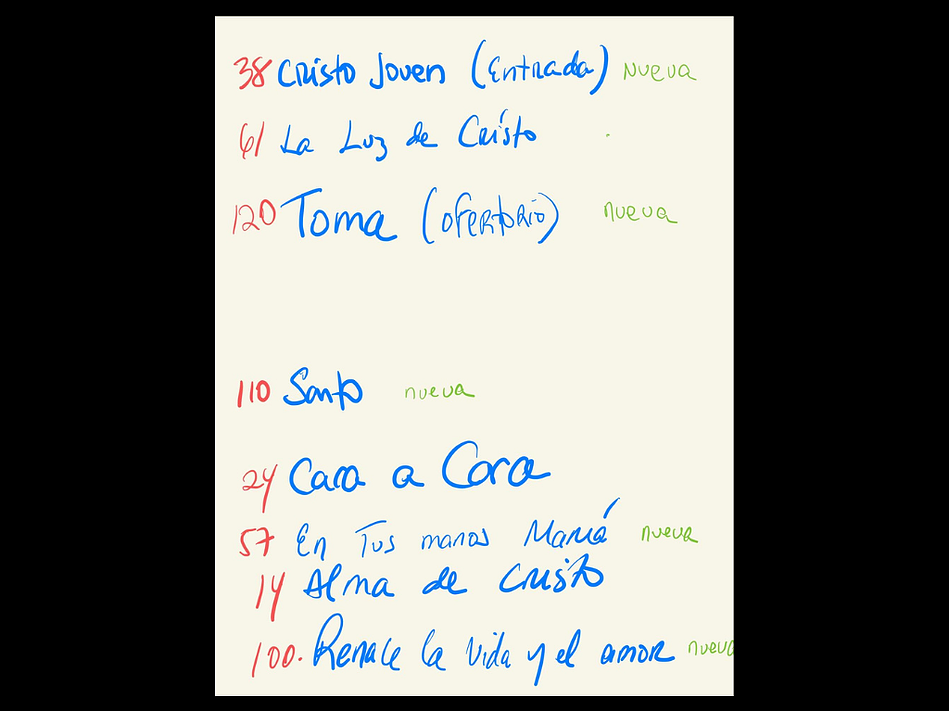 38 Cristo Joven (Entrada) Nueva
61 La Luz de Cristo
120 Toma (ofertorio) nueva
110 Santo nueva
24 Cara a Cara
57 En Tus manos María nueva
14 Alma de Cristo
100. Renace la vida y el amor nueva